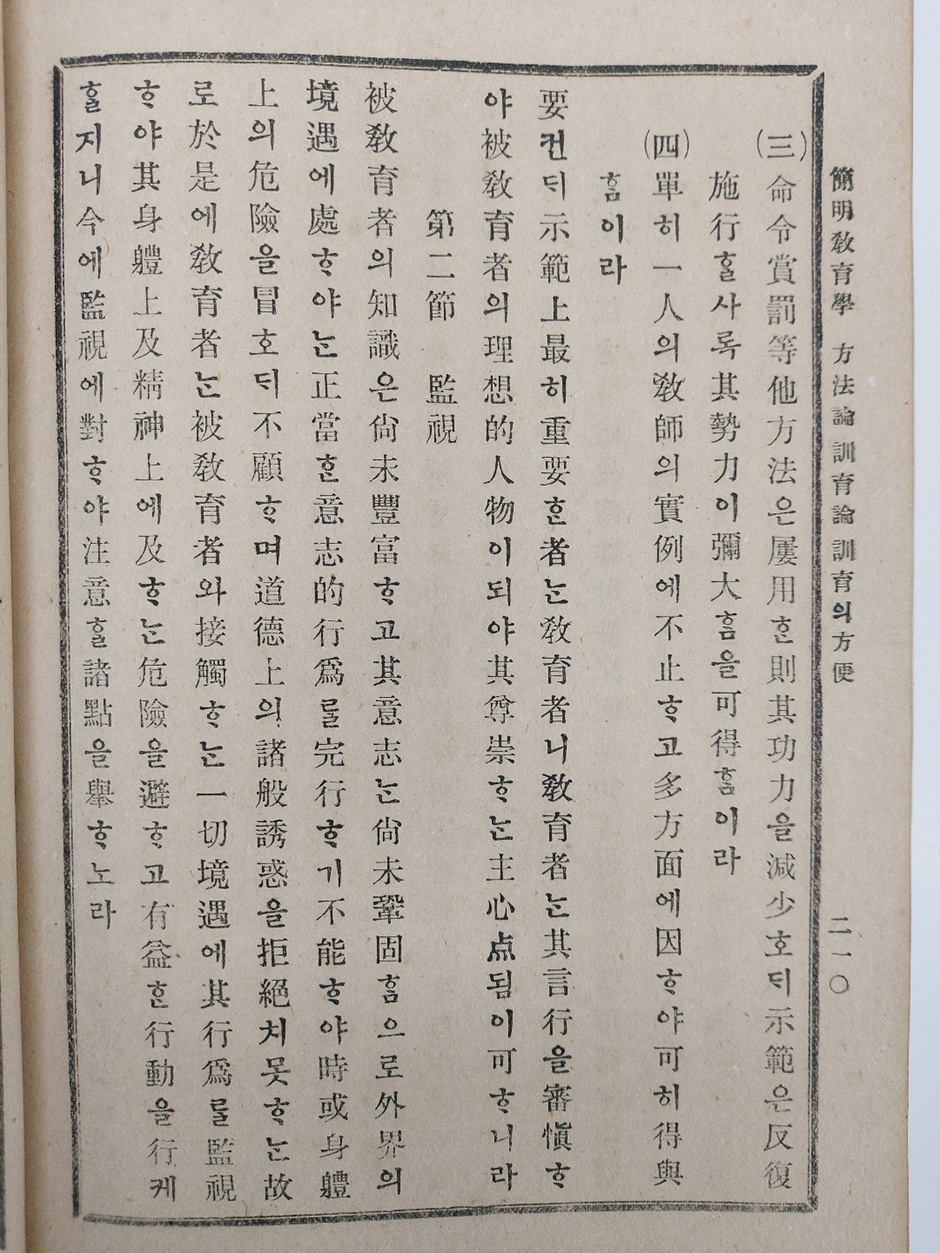 簡明敎育學 方法論 訓育論 訓育의方便 二一〇
(三)命令賞罰等他方法은屢用ᄒᆞᆫ則其功力을減少호ᄃᆡ示範은反復
施行ᄒᆞᆯ사록其勢力이彌大ᄒᆞᆷ을可得ᄒᆞᆷ이라
(四)單히一人의敎師의實例에不止ᄒᆞ고多方面에因ᄒᆞ야可히得與
ᄒᆞᆷ이라
要컨ᄃᆡ示範上最히重要ᄒᆞᆫ者ᄂᆞᆫ敎育者니敎育者ᄂᆞᆫ其言行을審愼ᄒᆞ
야被敎育者의理想的人物이되야其尊崇ᄒᆞᄂᆞᆫ主心点됨이可ᄒᆞ니라
第二節 監視
被敎育者의知識은尙未豐富ᄒᆞ고其意志ᄂᆞᆫ尙未鞏固ᄒᆞᆷ으로外界의
境遇에處ᄒᆞ야ᄂᆞᆫ正當ᄒᆞᆫ意志的行爲ᄅᆞᆯ完行ᄒᆞ기不能ᄒᆞ야時或身軆
上의危險을冒호ᄃᆡ不顧ᄒᆞ며道德上의諸般誘惑을拒絕치못ᄒᆞᄂᆞᆫ故
로於是에敎育者ᄂᆞᆫ被敎育者와接觸ᄒᆞᄂᆞᆫ一切境遇에其行爲ᄅᆞᆯ監視
ᄒᆞ야其身軆上及精神上에及ᄒᆞᄂᆞᆫ危險을避ᄒᆞ고有益ᄒᆞᆫ行動을行케
ᄒᆞᆯ지니今에監視에對ᄒᆞ야注意ᄒᆞᆯ諸點을擧ᄒᆞ노라